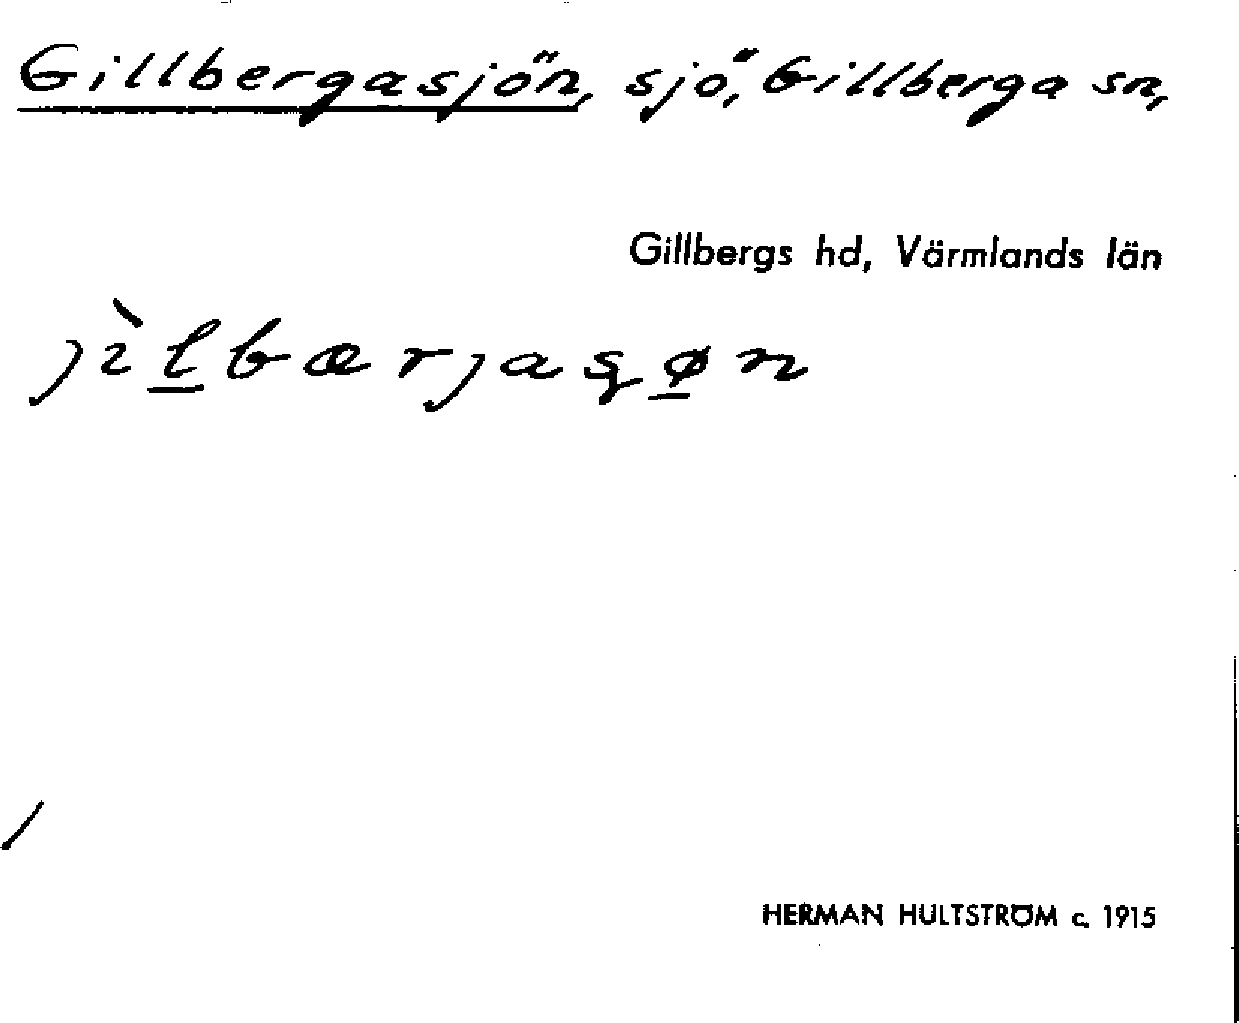 Gillbergasjön, sjö, Gillberga sn,
Gillbergs hd, Värmlands län
jìl̲bærjaʂø̲n
/
HERMAN HULTSTRÖM c. 1915